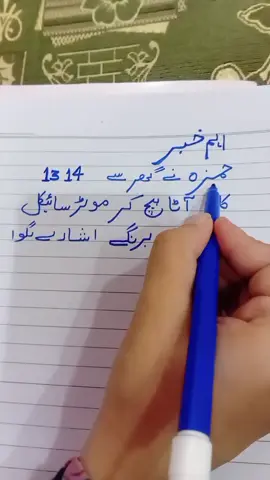 اہم خبر
حمزہ نے گھر سے 1314
کا آٹا بیچ کر موٹر سائیکل
پر رنگے اشارے لگوا